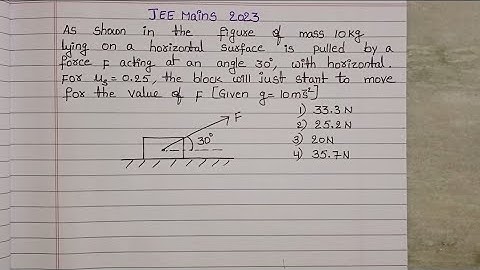 JEE Mains 2023
As shown in the figure of mass 10kg
lying on a horizontal surface is pulled by a
force F acting at an angle 30°, with horizontal.
For μs = 0.25, the block will just start to move
for the value of F [Given g = 10ms⁻²]
1) 33.3 N
2) 25.2 N
3) 20N
4) 35.7 N
F
30°